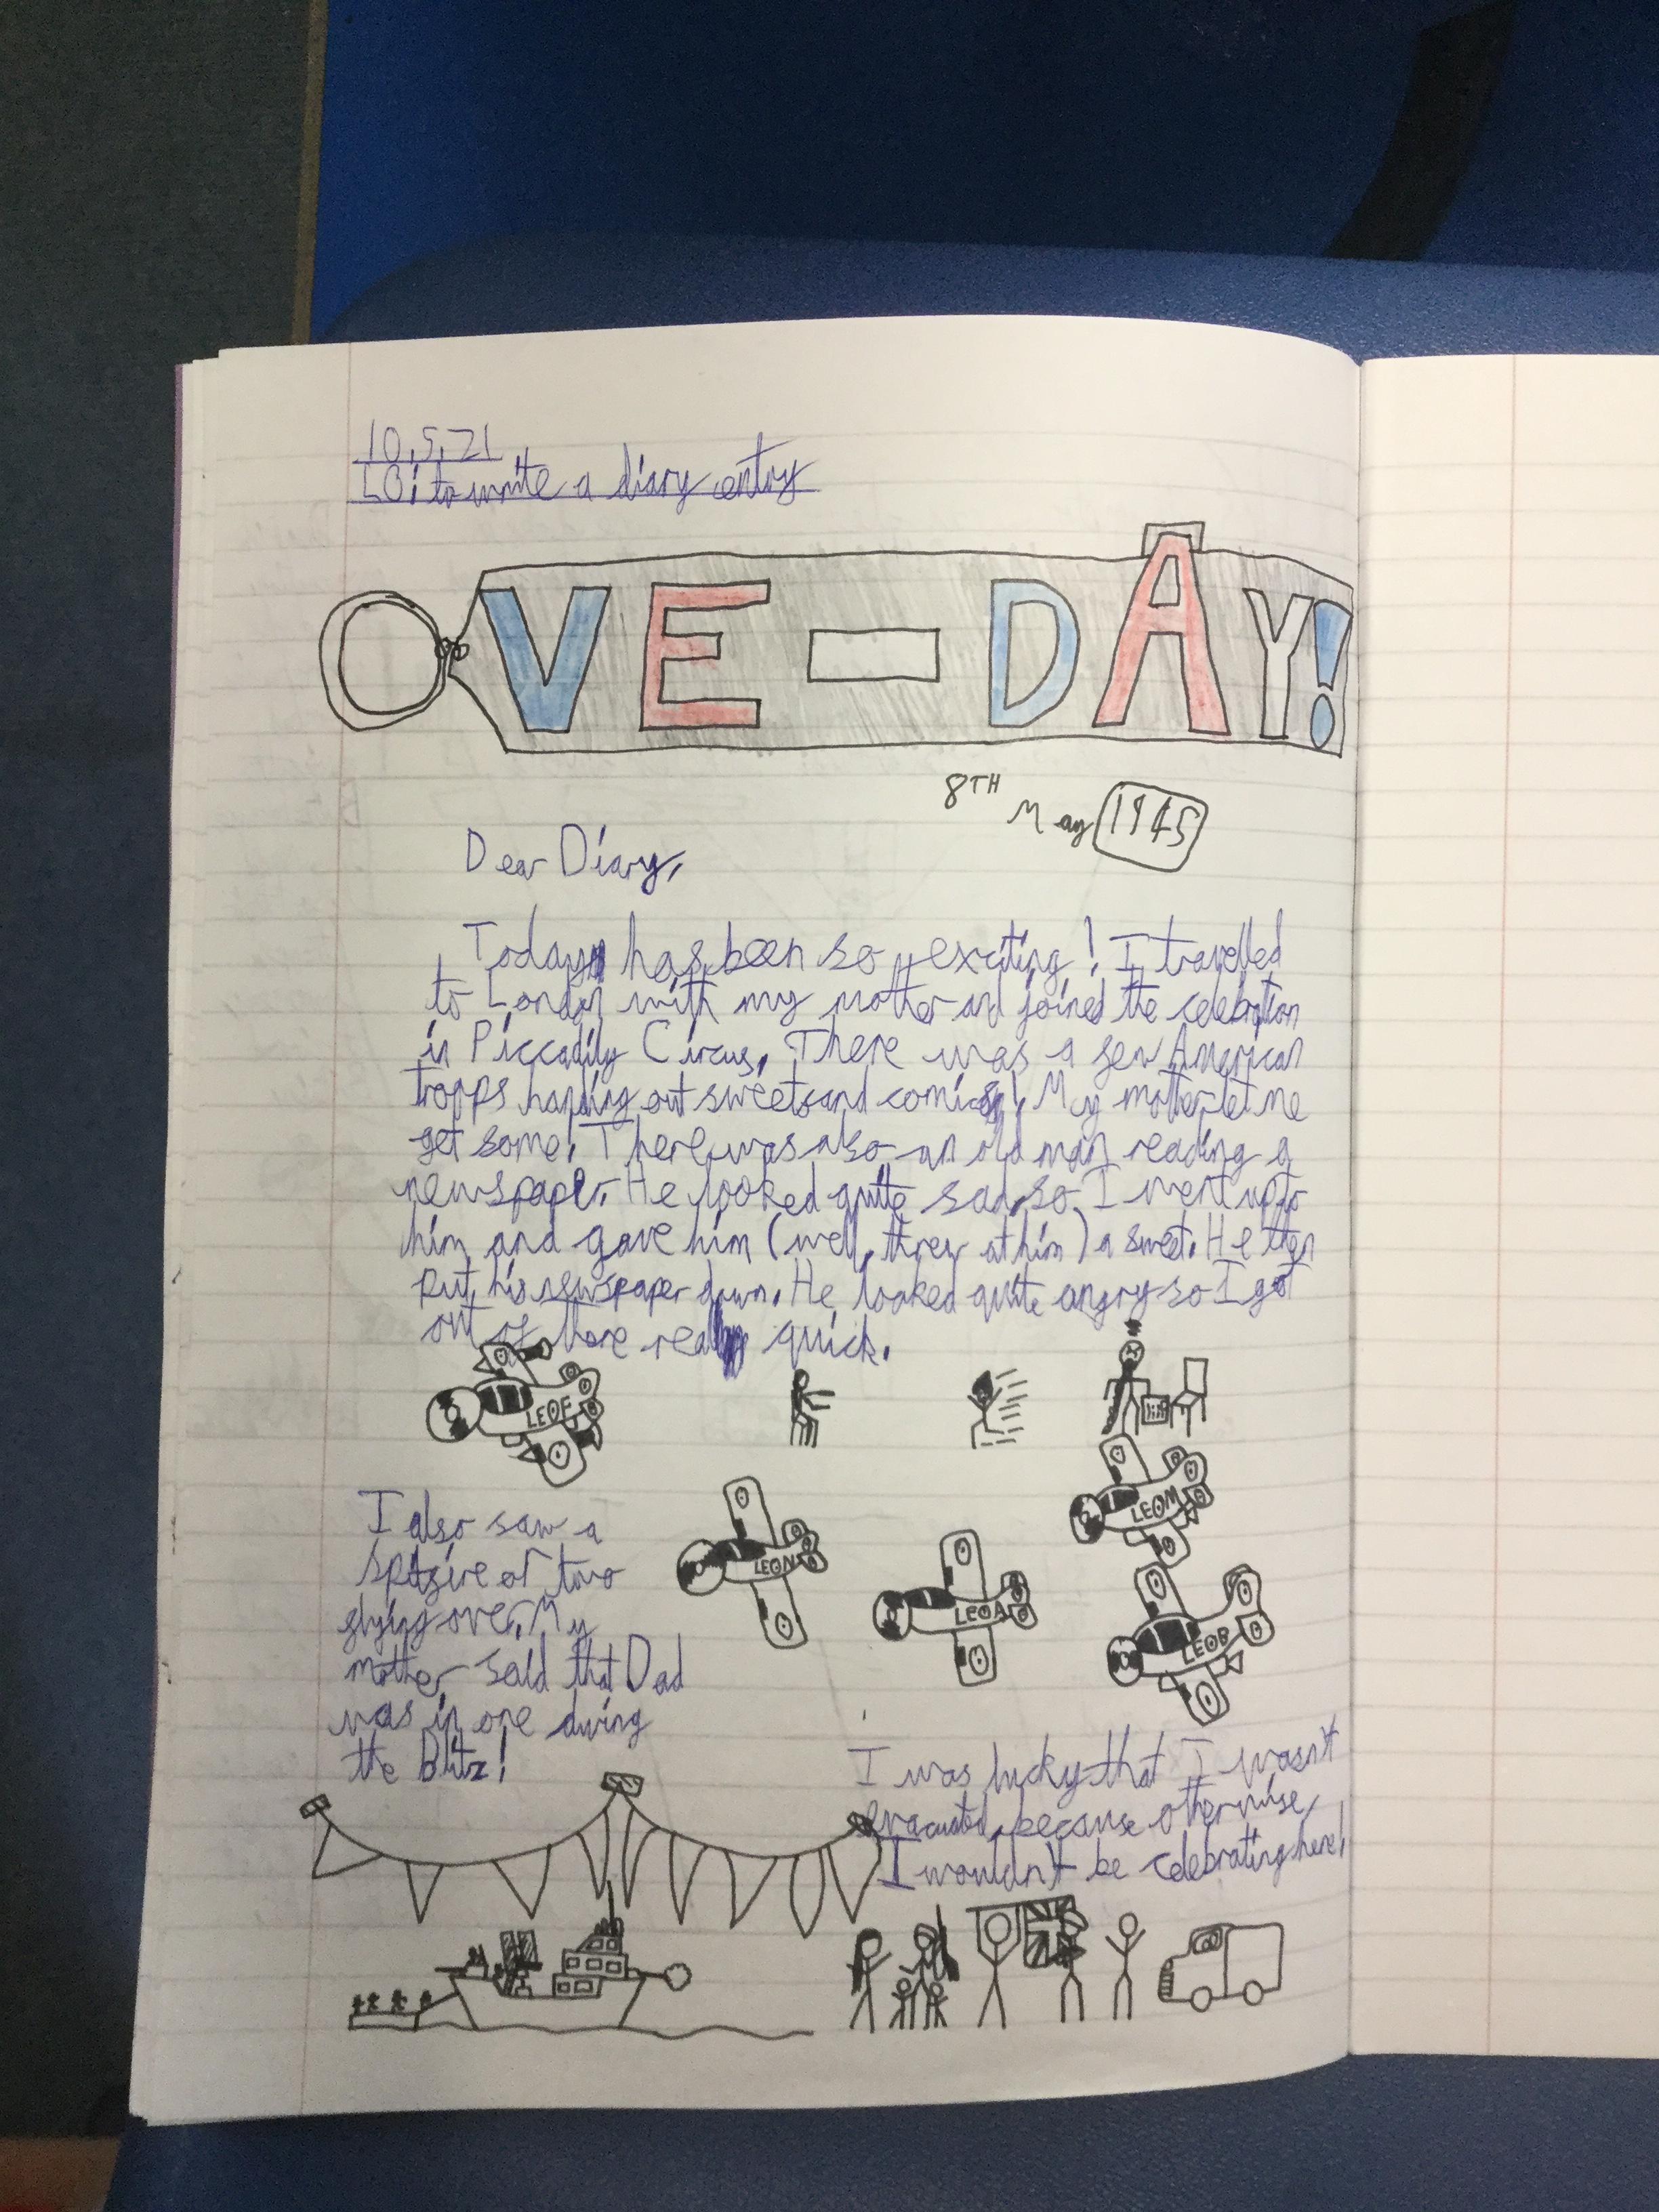 10.5.21
LO: to write a diary entry
VE-DAY!
8TH May 1945
Dear Diary,
Today has been so exciting! I travelled
to London with my mother and joined the celebration
in Piccadily Circus. There was a few American
tropps handing out sweets and comics! My mother let me
get some. There was also an old man reading a
newspaper. He looked quite sad, so I went up to
him and gave him (well, threw at him) a sweet. He then
put his newspaper down. He looked quite angry so I got
out of there really quick.
LEOF
LEOM
LEON
LEOA
LEOB
I also saw a
spitfire or two
flying over. My
mother said that Dad
was in one during
the Blitz!
I was lucky that I wasn't
evacuated, because otherwise,
I wouldn't be celebrating here!